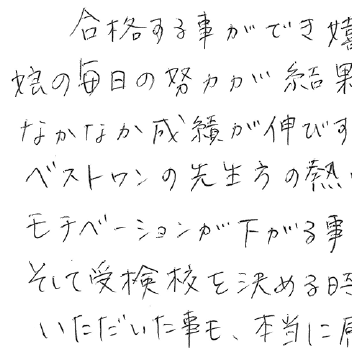 合格する事ができ嬉
娘の毎日の努力が結果
なかなか成績が伸びず
ベストワンの先生方の熱
モチベーションが下がる事
そして受検校を決める時
いただいた事も、本当に